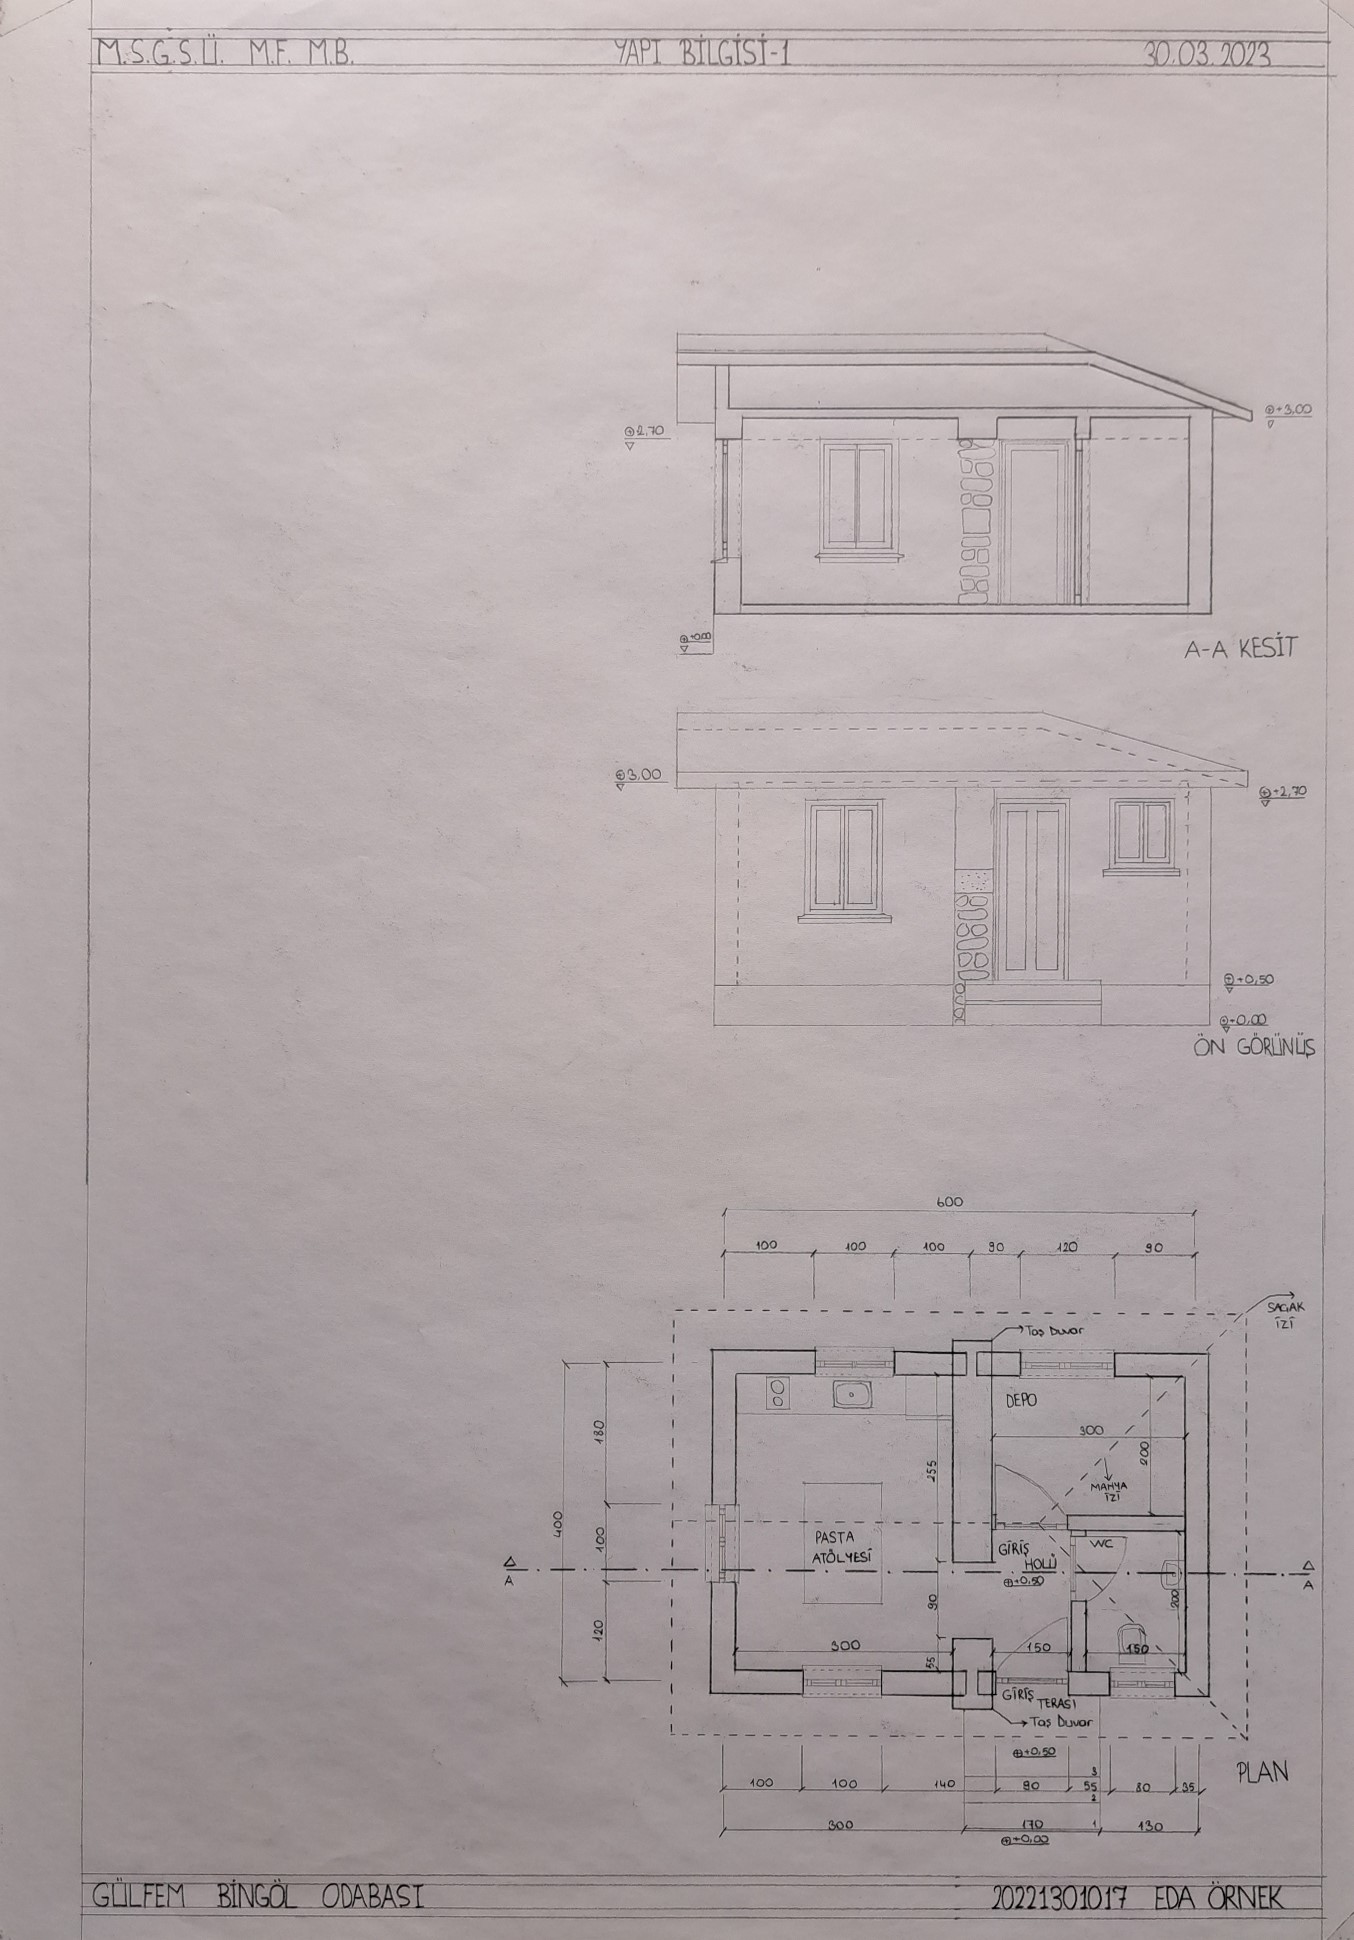 M.S.G.S.Ü. M.F. M.B. YAPI BİLGİSİ-1 30.03.2023
+3,00
2,70
+0,00
A-A KESİT
3,00
+2,70
+0,50
+0,00
ÖN GÖRÜNÜŞ
600
100 100 100 90 120 90
SAÇAK
İZİ
Taş Duvar
DEPO
300
180
255
200
MAHYA
İZİ
400
100
PASTA
ATÖLYESİ
GİRİŞ
HOLÜ
+0,50
WC
A
A
90
200
120
300
55
150
150
GİRİŞ
TERASI
Taş Duvar
+0,50
PLAN
3
100 100 140 90 55 80 35
2
300 170 1 130
+0,00
GÜLFEM BİNGÖL ODABASI 20221301017 EDA ÖRNEK